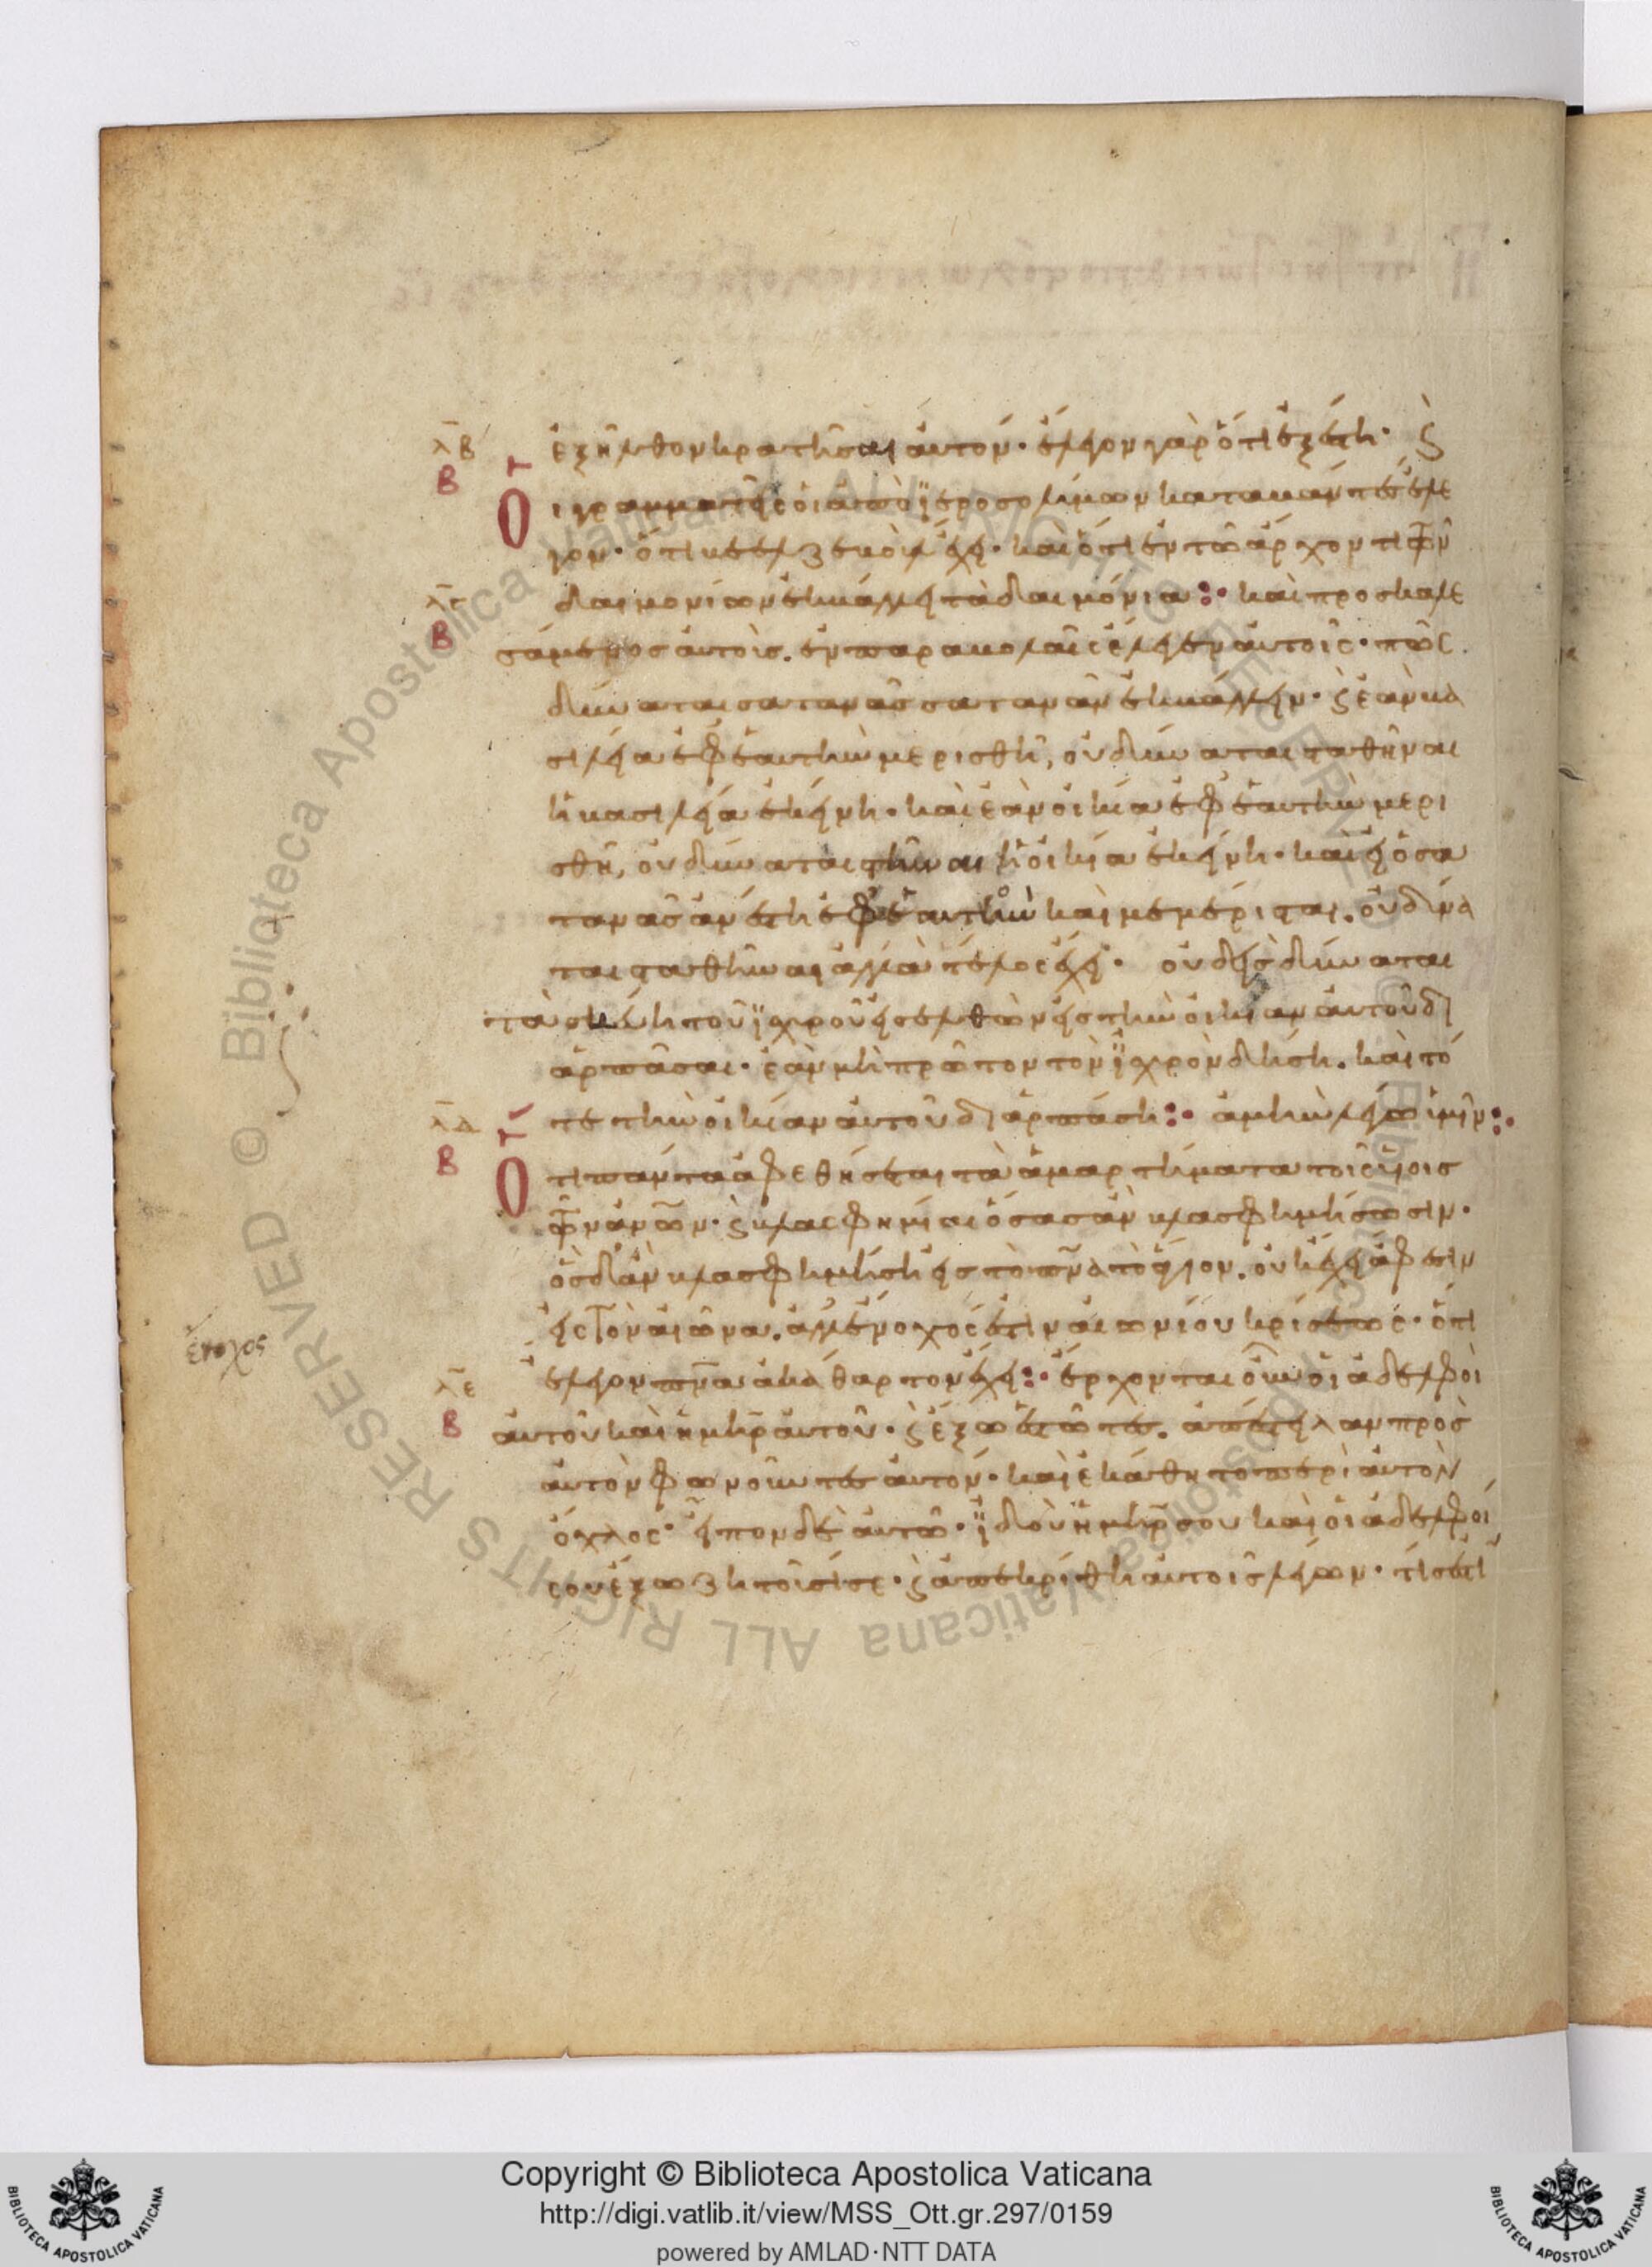 λβ
Β
ἐξῆλθον κρατῆσαι ἀυτόν· ἔλεγον γὰρ ὅτι ἐξέστη· ϛ
Οι γραμματεῖς οἱ ἀπὸ ἱεροσολύμων καταβάντες ἔλε
γον· ὅτι βεελζεβοὺλ ἔχει· καὶ ὅτι ἐν τῶ ἄρχοντι τῶν
λγ
Β
δαιμονίων ἐκβάλλει τὰ δαιμόνια: καὶ προσκαλε
σάμενος ἀυτοὺς. ἐν παραβολαῖς ἔλεγεν ἀυτοῖς· πῶς
δύναται σατανᾶς σατανᾶν ἐκβάλλειν· ϛ ἐὰν βα
σιλεία ἐφ ἑαυτὴν μερισθῆ, οὐ δύναται σταθῆναι
ἡ βασιλεία ἐκείνη· καὶ ἐὰν οἰκία ἐφ ἑαυτὴν μερι
σθῆ, οὐ δύναται στῆναι ἡ οἰκία ἐκείνη· καὶ εἰ ὁ σα
τανᾶς ἀνέστη ἐφ ἑαυτὸν καὶ μεμέρισται. οὐ δύνα
ται σταθῆναι ἀλλὰ τέλος ἔχει· οὐδεὶς δύναται
τὰ σκεύη τοῦ ἰσχυροῦ εἰσελθὼν εἰς τὴν οἰκίαν ἀυτοῦ δι
αρπᾶσαι· ἐὰν μὴ πρῶτον τὸν ἰσχυρὸν δήση. καὶ τό
λδ
Β
τε τὴν οἰκίαν ἀυτοῦ διαρπάση: ἀμὴν λέγω ὑμῖν:
Οτι πάντα ἀφεθήσεται τὰ ἁμαρτήματα τοῖς υἱοις
τῶν ἀνων· ϛ βλασφημίαι ὅσας ἂν βλασφημήσωσιν·
ὃς δ ἂν βλασφημήση εἰς τὸ πνα τὸ ἅγιον. οὐκ ἔχει ἄφεσιν
εἰς τὸν αἰῶνα. ἀλλ ἔνοχός ἐστιν αἰωνίου κρίσεως· ὅτι
ἔνοχος
λε
Β
ἔλεγον πνα ἀκάθαρτον ἔχει: ἔρχονται οὖν οἱ ἀδελφοὶ
ἀυτοῦ καὶ ἡ μηρ ἀυτοῦ· ϛ ἔξω ἑστῶτες. ἀπέστειλαν πρὸς
ἀυτὸν φωνοῦντες ἀυτόν· καὶ ἐκάθητο περὶ ἀυτὸν
ὄχλος· εἶπον δὲ ἀυτῶ· ἰδοὺ ἡ μηρ σου καὶ οἱ ἀδελφοί
σου ἔξω ζητοῦσί σε· ϛ ἀπεκρίθη ἀυτοῖς λέγων· τίς ἐστι
Copyright © Biblioteca Apostolica Vaticana
http://digi.vatlib.it/view/MSS_Ott.gr.297/0159
powered by AMLAD·NTT DATA